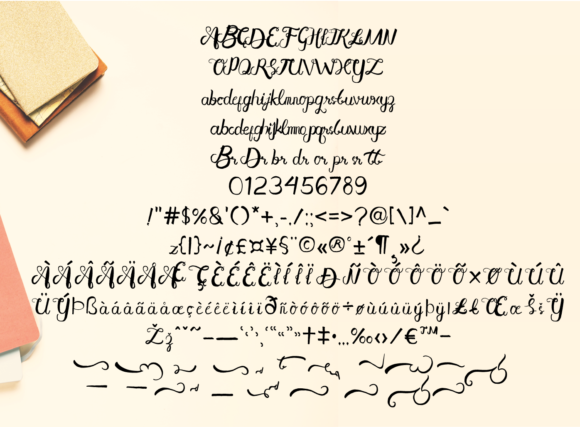 ABCDEFGHIJKLMN
OPQRSTUVWXYZ
abcdefghijklmnopqrstuvwxyz
abcdefghijklmnopqrstuvwxyz
Br Dr br dr or pr sr tt
0123456789
!"#$%&'()*+,-./:;<=>?@[\]^_`
z{|}~¡¢£¤¥§¨©«®°±´¶¸»¿
ÀÁÂÃÄÅÆÇÈÉÊËÌÍÎÏÐÑÒÓÔÖÕ×ØÙÚÛ
ÜÝÞßàáâãäåæçèéêëìíîïðñòóôõö÷øùúûüýþÿıŁłŒœŠšŸ
Žžˆˇ˜–—‘’‚“”„†‡•…‰‹›/€™−